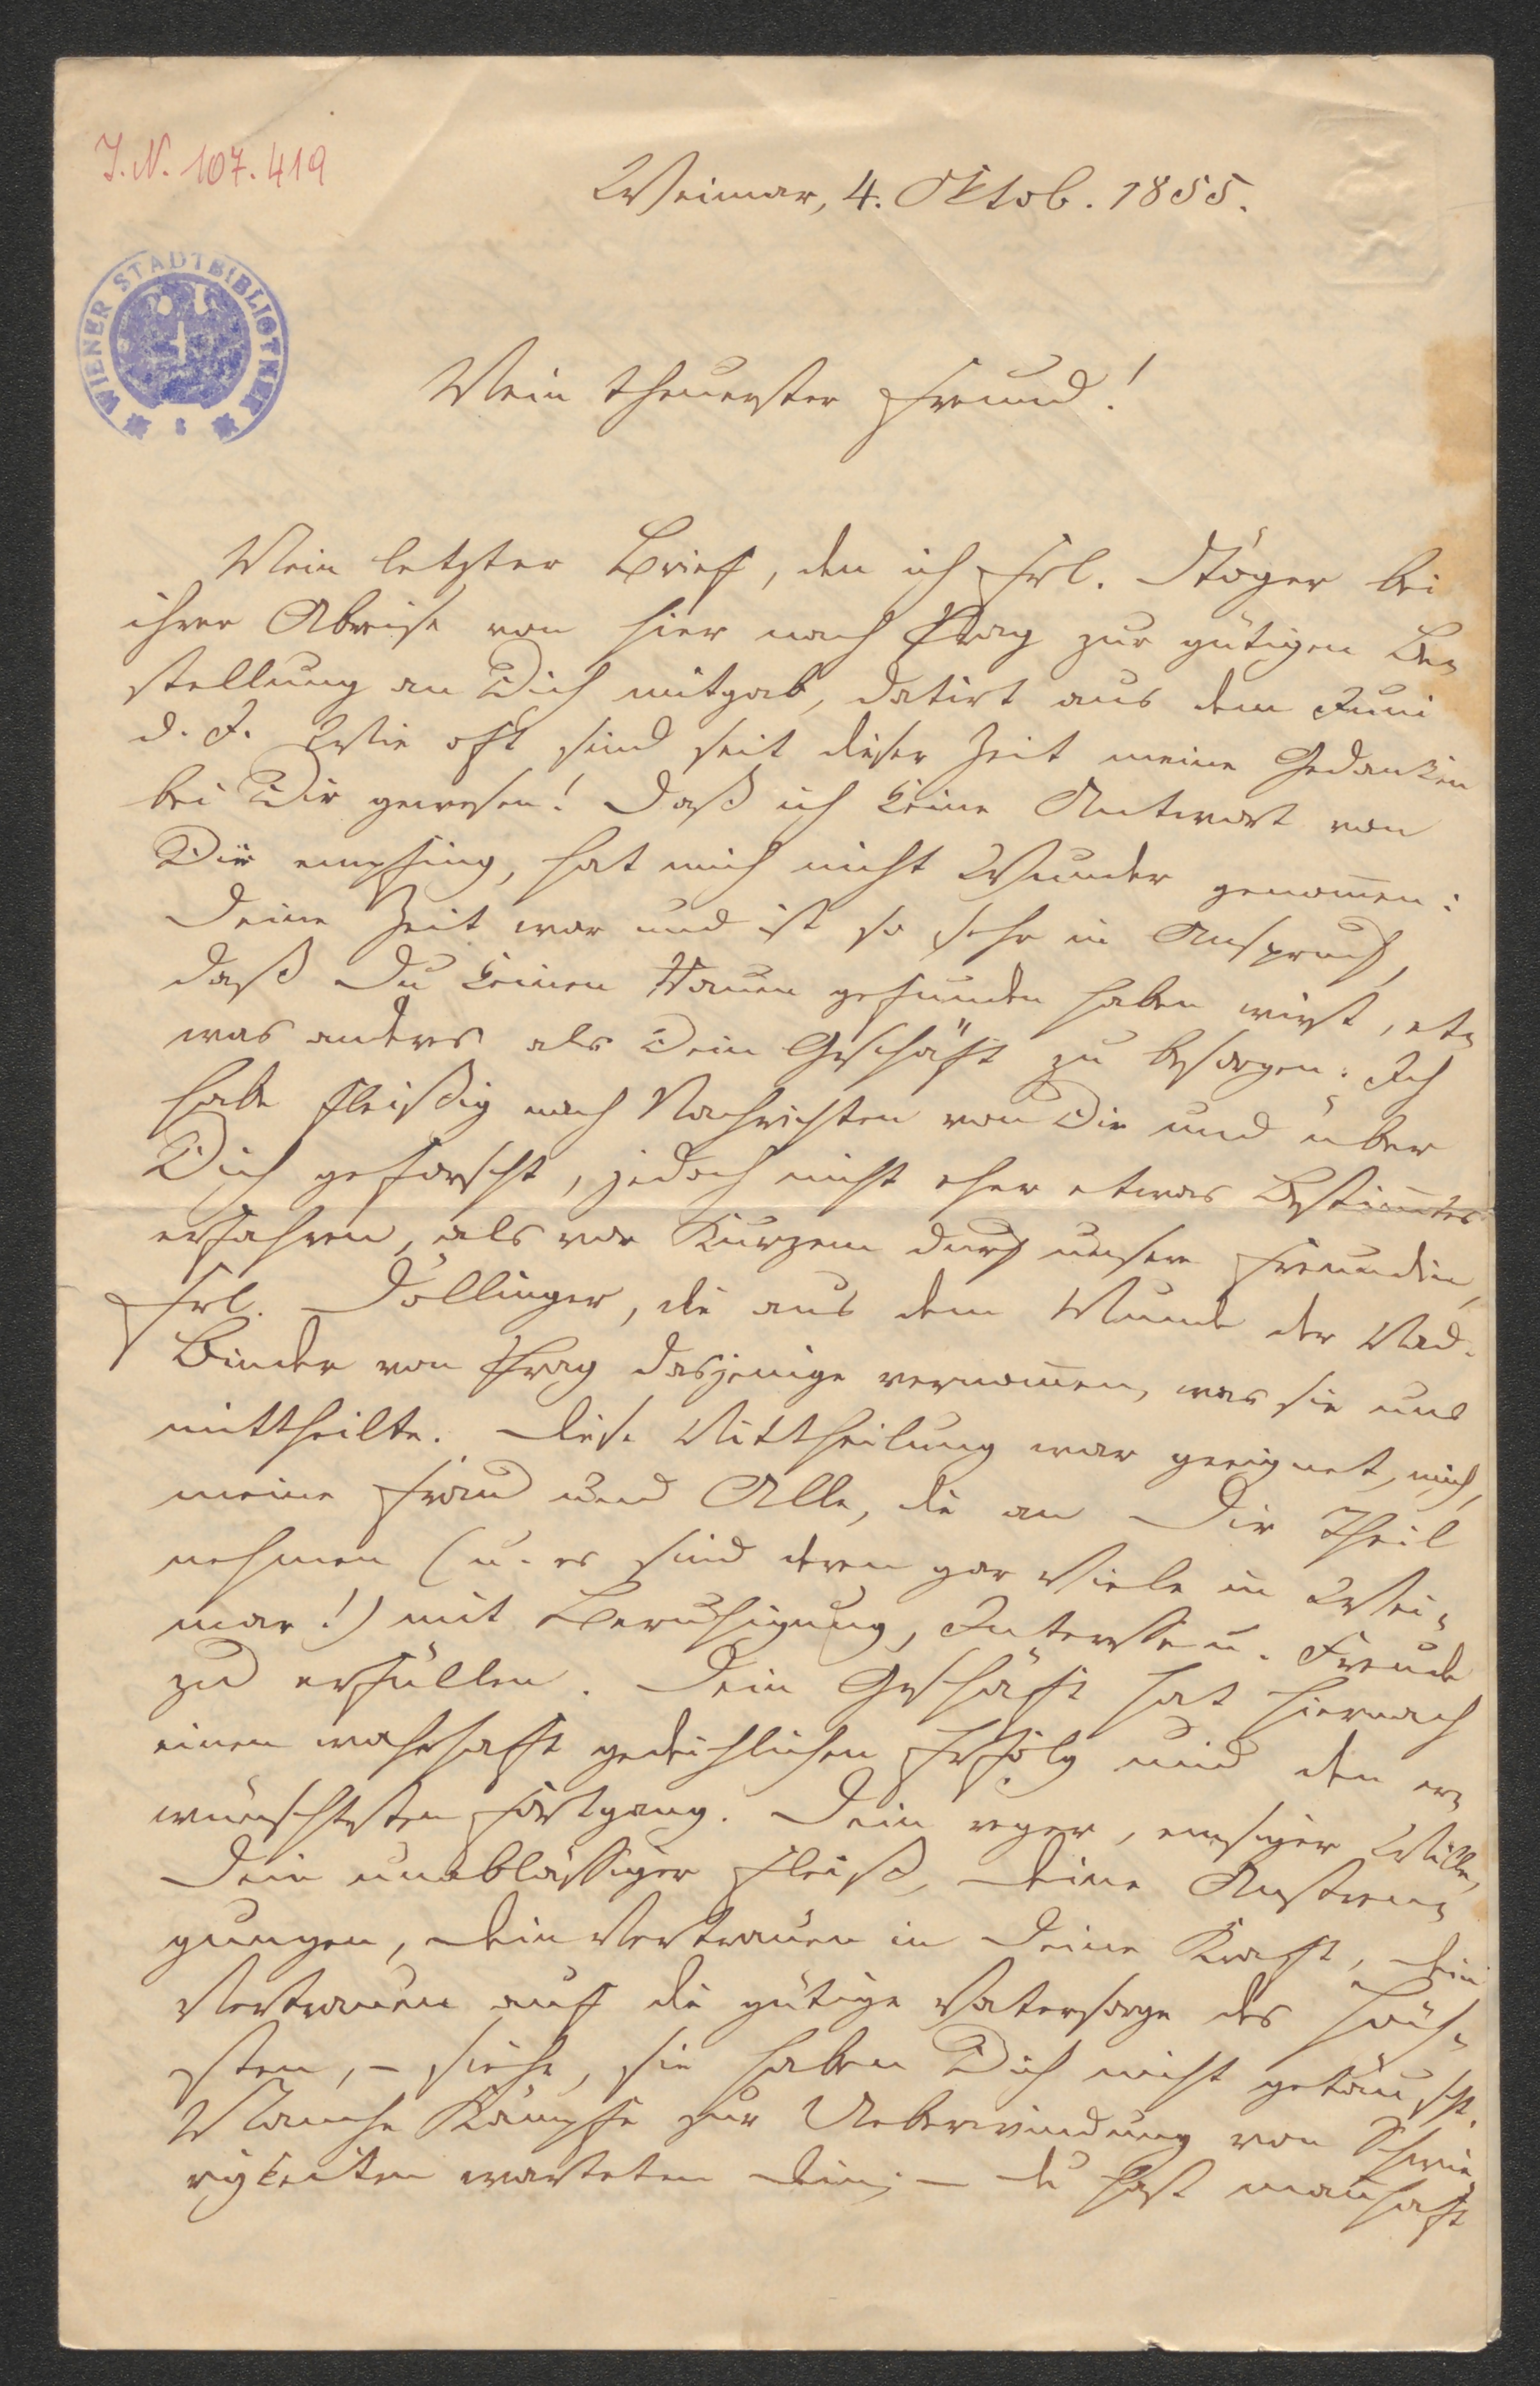 J.N. 107.419
Weimar, 4. Oktob. 1855.
WIENER STADTBIBLIOTHEK
Mein theuerster Freund!
Mein letzter Brief, den ich Frl. Stöger bei
ihrer Abreise von hier nach Prag zur gütigen Be-
stellung an Dich mitgab, datirt aus dem Juni
d. J. Wie oft sind seit dieser Zeit meine Gedanken
bei Dir gewesen! Daß ich keine Antwort von
Dir empfing, hat mich nicht Wunder genom̄en:
Deine Zeit war und ist so sehr in Anspruch,
daß Du keinen Raum gefunden haben wirst, et-
was anders als Dein Geschäft zu besorgen. Ich
habe fleißig nach Nachrichten von Dir und über
Dich geforscht, jedoch nicht eher etwas Bestim̄tes
erfahren, als vor Kurzem durch unsere Freundin,
Frl. Döllinger, die aus dem Munde der Mad.
Binder von Prag dasjenige vernom̄en, was sie uns
mittheilte. Diese Mittheilung war geeignet, mich,
meine Frau und Alle, die an Dir Theil
nehmen (u. es sind deren gar Viele in Wei-
mar!) mit Beruhigung, Interesse u. Freude
zu erfüllen. Dein Geschäft hat hiernach
einen wahrhaft gedeihlichen Erfolg und den er-
wünschtesten Fortgang. Dein reger, emsiger Wille,
Dein unabläßiger Fleiß, Deine Anstren-
gungen, Dein Vertrauen in Deine Kraft, Dein
Vertrauen auf die gütige Vatersorge des Höch-
sten, – siehe, sie haben Dich nicht getäuscht.
Manche Kämpfe zur Ueberwindung von Schwie-
rigkeiten warteten Dein; – Du hast man̄haft